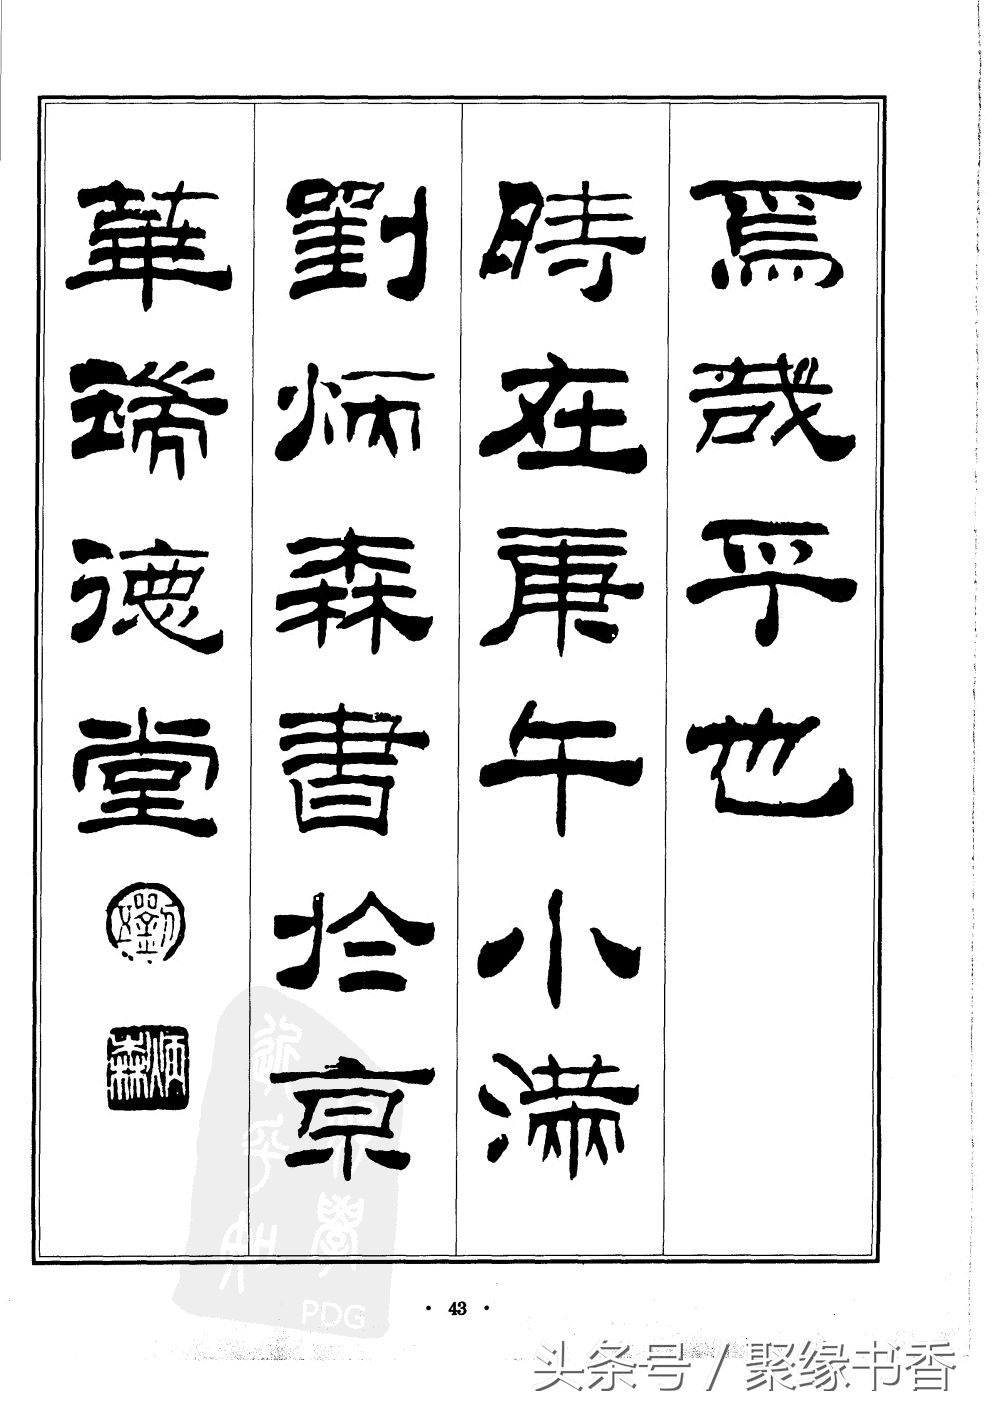 焉哉乎也
時在庚午小满
劉炳森書於京
華瑞德堂
劉
炳森
PDG
· 43 ·
头条号 / 聚缘书香